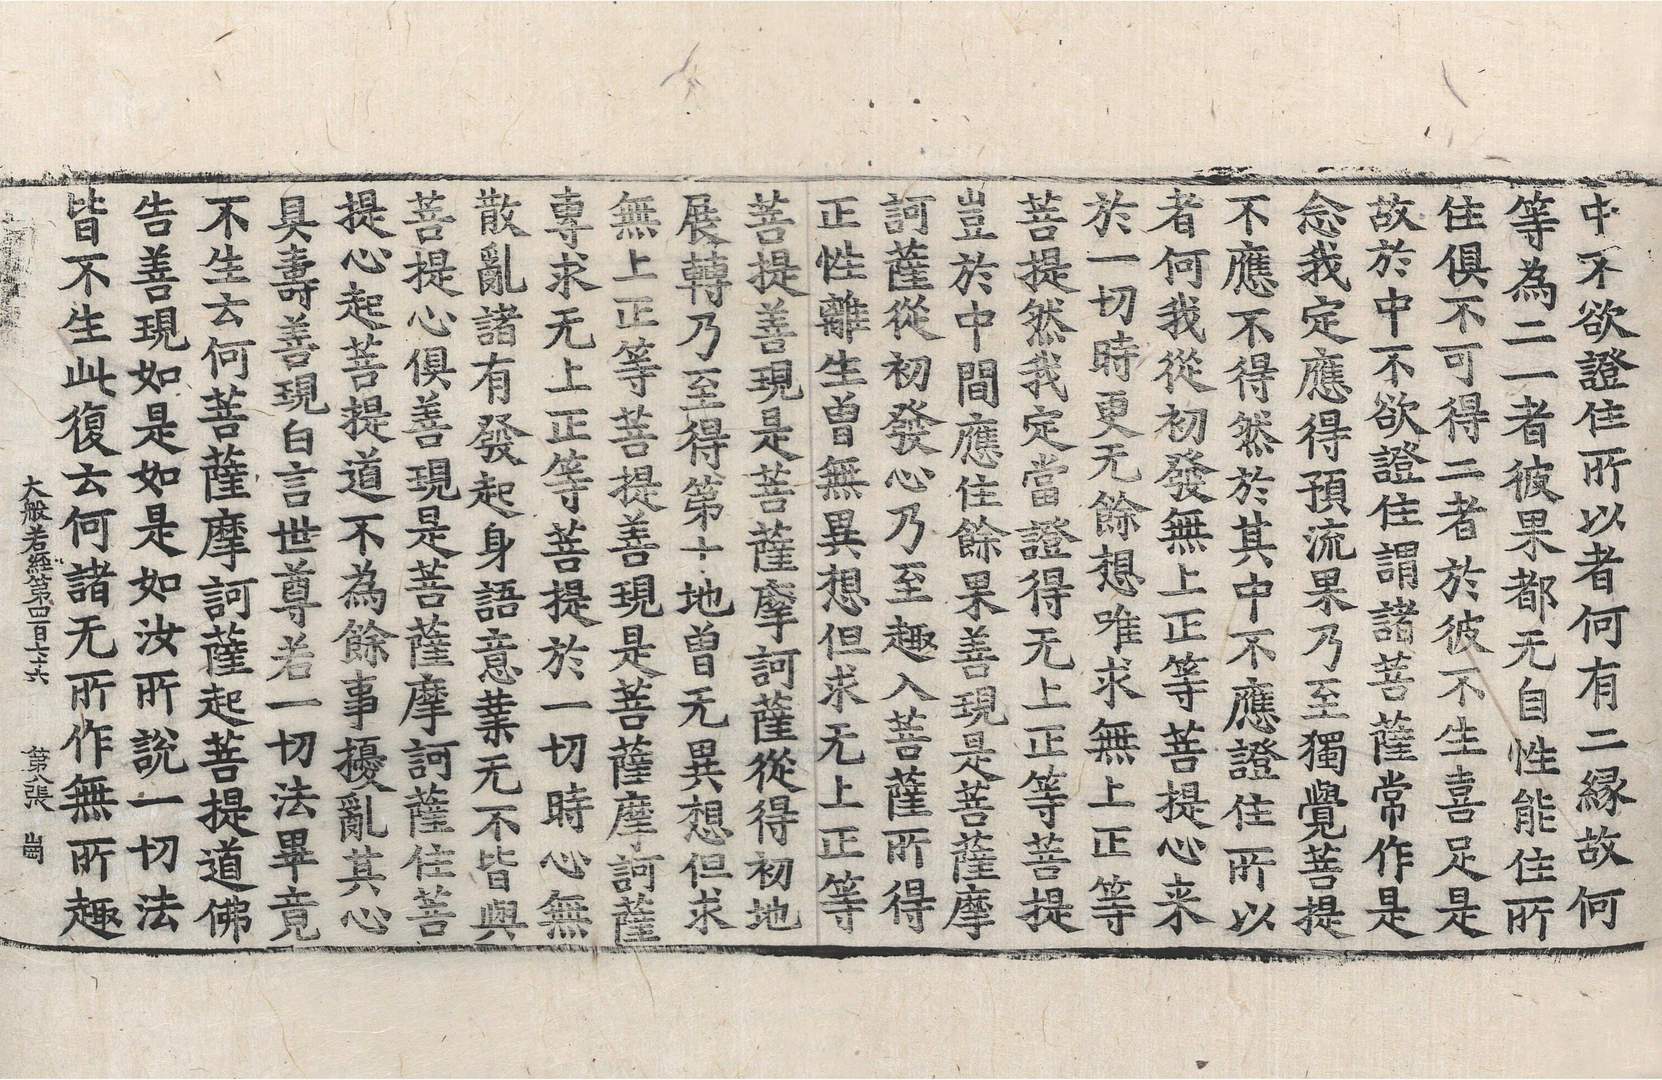 中不欲證住所以者何有二縁故何
等為二一者彼果都无自性能住所
住俱不可得二者於彼不生喜足是
故於中不欲證住謂諸菩薩常作是
念我定應得預流果乃至獨覺菩提
不應不得然於其中不應證住所以
者何我從初發無上正等菩提心来
於一切時更无餘想唯求無上正等
菩提然我定當證得无上正等菩提
豈於中間應住餘果善現是菩薩摩
訶薩從初發心乃至趣入菩薩所得
正性離生曽無異想但求无上正等
菩提善現是菩薩摩訶薩從得初地
展轉乃至得第十地曽无異想但求
無上正等菩提善現是菩薩摩訶薩
專求无上正等菩提於一切時心無
散亂諸有發起身語意業无不皆與
菩提心俱善現是菩薩摩訶薩住菩
提心起菩提道不為餘事擾亂其心
具壽善現白言世尊若一切法畢竟
不生云何菩薩摩訶薩起菩提道佛
告善現如是如是如汝所說一切法
皆不生此復云何諸无所作無所趣
大般若經第四百六十六 第八張 崗